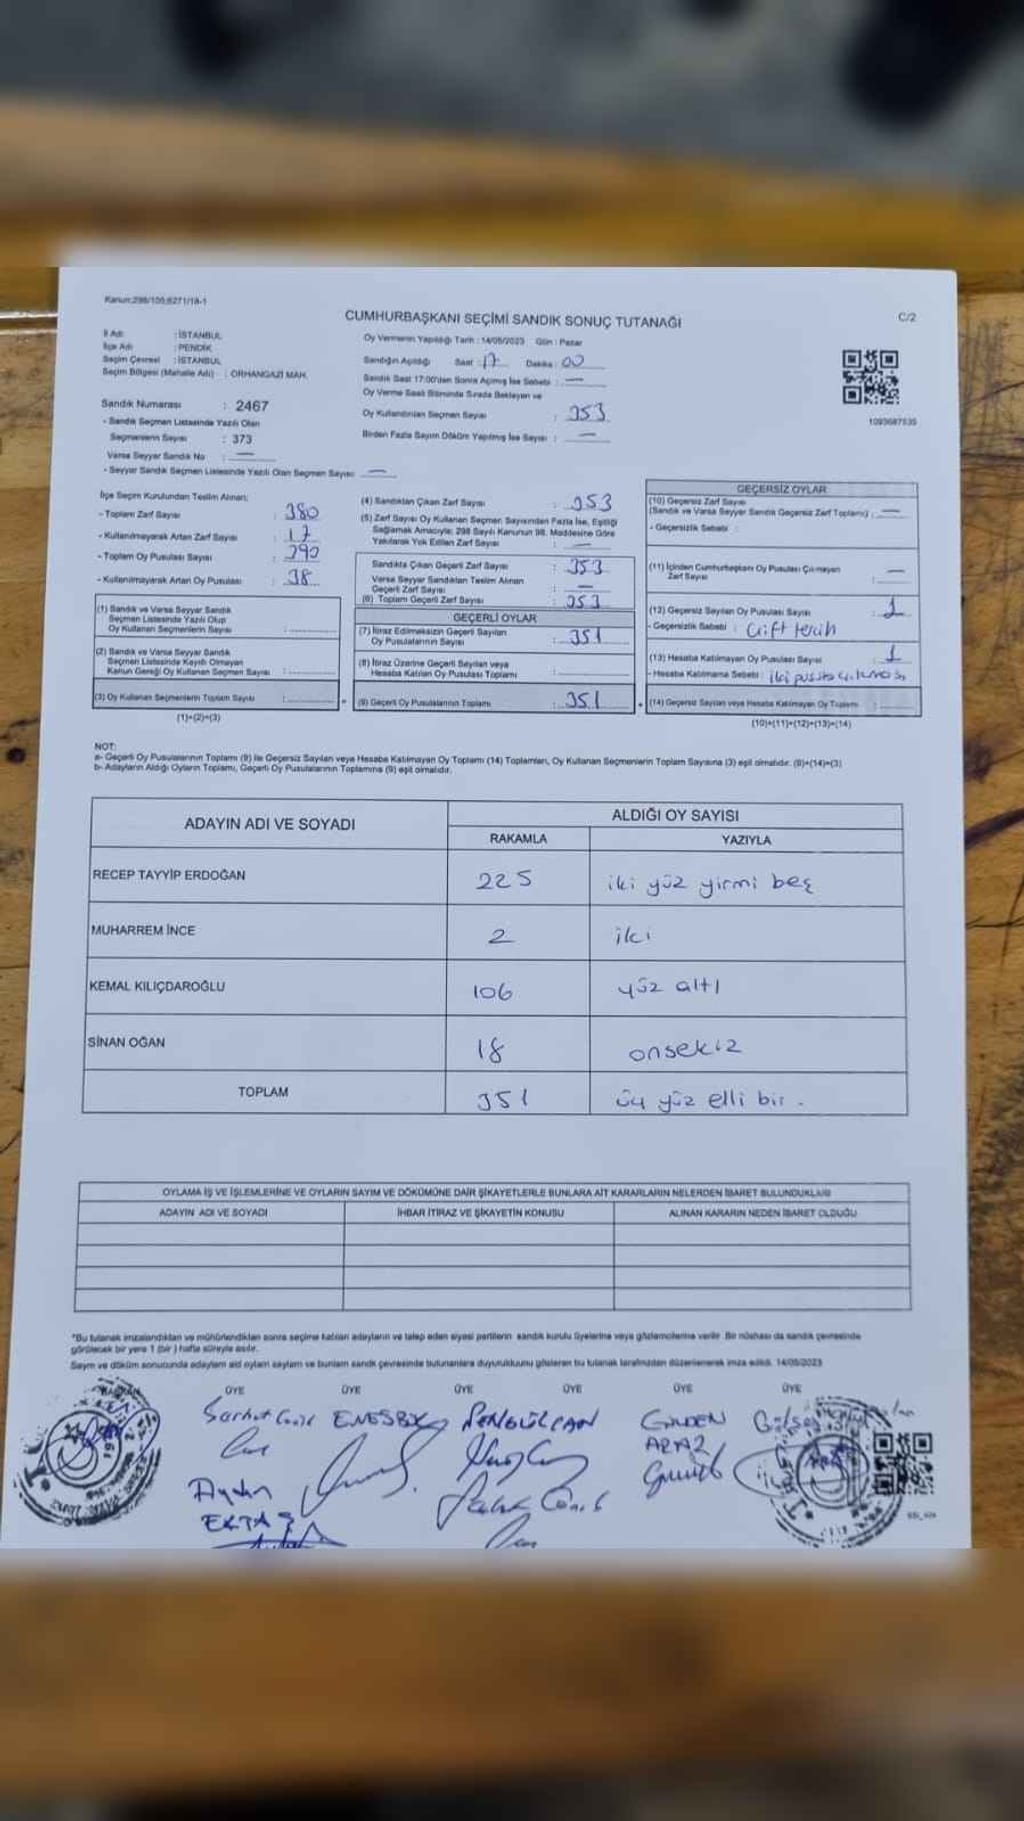 Kanun:298/105;6271/18-1
CUMHURBAŞKANI SEÇİMİ SANDIK SONUÇ TUTANAĞI
C/2
İl Adı : İSTANBUL
İlçe Adı : PENDİK
Seçim Çevresi : İSTANBUL
Seçim Bölgesi (Mahalle Adı) : ORHANGAZİ MAH.
Sandık Numarası : 2467
- Sandık Seçmen Listesinde Yazılı Olan
Seçmenlerin Sayısı : 373
Varsa Seyyar Sandık No : —
- Seyyar Sandık Seçmen Listesinde Yazılı Olan Seçmen Sayısı —
Oy Vermenin Yapıldığı Tarih : 14/05/2023 Gün : Pazar
Sandığın Açıldığı Saat : 17 Dakika : 00
Sandık Saat 17:00'den Sonra Açılmış İse Sebebi : —
Oy Verme Saati Bitiminde Sırada Bekleyen ve
Oy Kullandırılan Seçmen Sayısı : 353
Birden Fazla Sayım Döküm Yapılmış İse Sayısı : —
1093687535
İlçe Seçim Kurulundan Teslim Alınan;
- Toplam Zarf Sayısı : 380
- Kullanılmayarak Artan Zarf Sayısı : 17
- Toplam Oy Pusulası Sayısı : 390
- Kullanılmayarak Artan Oy Pusulası : 38
(1) Sandık ve Varsa Seyyar Sandık
Seçmen Listesinde Yazılı Olup
Oy Kullanan Seçmenlerin Sayısı :
(2) Sandık ve Varsa Seyyar Sandık
Seçmen Listesinde Kayıtlı Olmayan
Kanun Gereği Oy Kullanan Seçmen Sayısı :
(3) Oy Kullanan Seçmenlerin Toplam Sayısı :
(1)+(2)=(3)
(4) Sandıktan Çıkan Zarf Sayısı : 353
(5) Zarf Sayısı Oy Kullanan Seçmen Sayısından Fazla İse, Eşitliği
Sağlamak Amacıyla; 298 Sayılı Kanunun 98. Maddesine Göre
Yakılarak Yok Edilen Zarf Sayısı : —
Sandıkta Çıkan Geçerli Zarf Sayısı : 353
Varsa Seyyar Sandıktan Teslim Alınan
Geçerli Zarf Sayısı : —
(6) Toplam Geçerli Zarf Sayısı : 353
GEÇERLİ OYLAR
(7) İtiraz Edilmeksizin Geçerli Sayılan
Oy Pusulalarının Sayısı : 351
(8) İtiraz Üzerine Geçerli Sayılan veya
Hesaba Katılan Oy Pusulası Toplamı :
(9) Geçerli Oy Pusulalarının Toplamı : 351
GEÇERSİZ OYLAR
(10) Geçersiz Zarf Sayısı
(Sandık ve Varsa Seyyar Sandık Geçersiz Zarf Toplamı) : —
- Geçersizlik Sebebi :
(11) İçinden Cumhurbaşkanı Oy Pusulası Çıkmayan
Zarf Sayısı : —
(12) Geçersiz Sayılan Oy Pusulası Sayısı : 1
- Geçersizlik Sebebi : Çift tercih
(13) Hesaba Katılmayan Oy Pusulası Sayısı : 1
- Hesaba Katılmama Sebebi : iki pusula çıkması
(14) Geçersiz Sayılan veya Hesaba Katılmayan Oy Toplamı :
(10)+(11)+(12)+(13)=(14)
NOT:
a- Geçerli Oy Pusulalarının Toplamı (9) ile Geçersiz Sayılan veya Hesaba Katılmayan Oy Toplamı (14) Toplamları, Oy Kullanan Seçmenlerin Toplam Sayısına (3) eşit olmalıdır. (9)+(14)=(3)
b- Adayların Aldığı Oyların Toplamı, Geçerli Oy Pusulalarının Toplamına (9) eşit olmalıdır.
ADAYIN ADI VE SOYADI ALDIĞI OY SAYISI
RAKAMLA YAZIYLA
RECEP TAYYİP ERDOĞAN 225 iki yüz yirmi beş
MUHARREM İNCE 2 iki
KEMAL KILIÇDAROĞLU 106 yüz altı
SİNAN OĞAN 18 onsekiz
TOPLAM 351 üç yüz elli bir.
OYLAMA İŞ VE İŞLEMLERİNE VE OYLARIN SAYIM VE DÖKÜMÜNE DAİR ŞİKAYETLERLE BUNLARA AİT KARARLARIN NELERDEN İBARET BULUNDUKLARI
ADAYIN ADI VE SOYADI İHBAR İTİRAZ VE ŞİKAYETİN KONUSU ALINAN KARARIN NEDEN İBARET OLDUĞU
*Bu tutanak imzalandıktan ve mühürlendikten sonra seçime katılan adayların ve talep eden siyasi partilerin sandık kurulu üyelerine veya gözlemcilerine verilir. Bir nüshası da sandık çevresinde
görülecek bir yere 1 (bir) hafta süreyle asılır.
Sayım ve döküm sonucunda adayların aldı oyların sayıları ve bunların sandık çevresinde bulunanlara duyurulduğunu gösteren bu tutanak tarafımızdan düzenlenerek imza edildi. 14/05/2023
BAŞKAN ÜYE ÜYE ÜYE ÜYE ÜYE ÜYE
ŞENGÜL CAN
GÜLDEN
ARAZ
Aydın
EKTAŞ